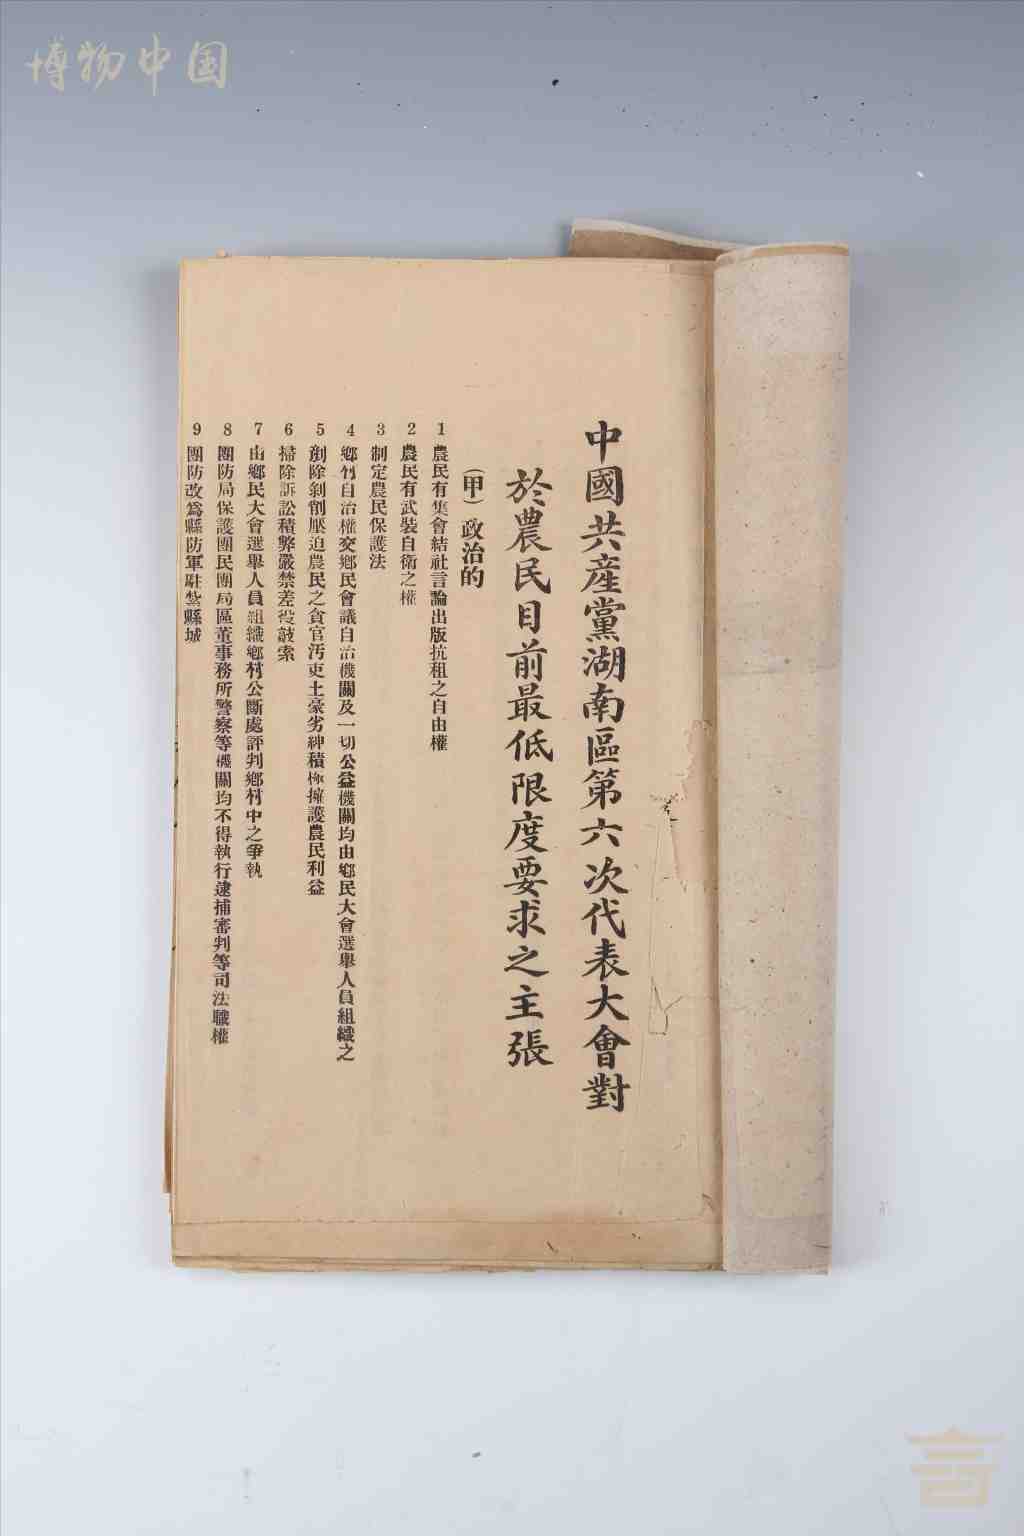 博物中国
中國共産黨湖南區第六次代表大會對
於農民目前最低限度要求之主張
(甲)政治的
1 農民有集會結社言論出版抗租之自由權
2 農民有武裝自衛之權
3 制定農民保護法
4 鄉村自治權交鄉民會議自治機關及一切公益機關均由鄉民大會選舉人員組織之
5 剷除剝削壓迫農民之貪官汚吏土豪劣紳積極擁護農民利益
6 掃除訴訟積弊嚴禁差役敲索
7 由鄉民大會選舉人員組織鄉村公斷處評判鄉村中之爭執
8 團防局保護團民團局區董事務所警察等機關均不得執行逮捕審判等司法職權
9 團防改爲縣防軍駐紮縣城